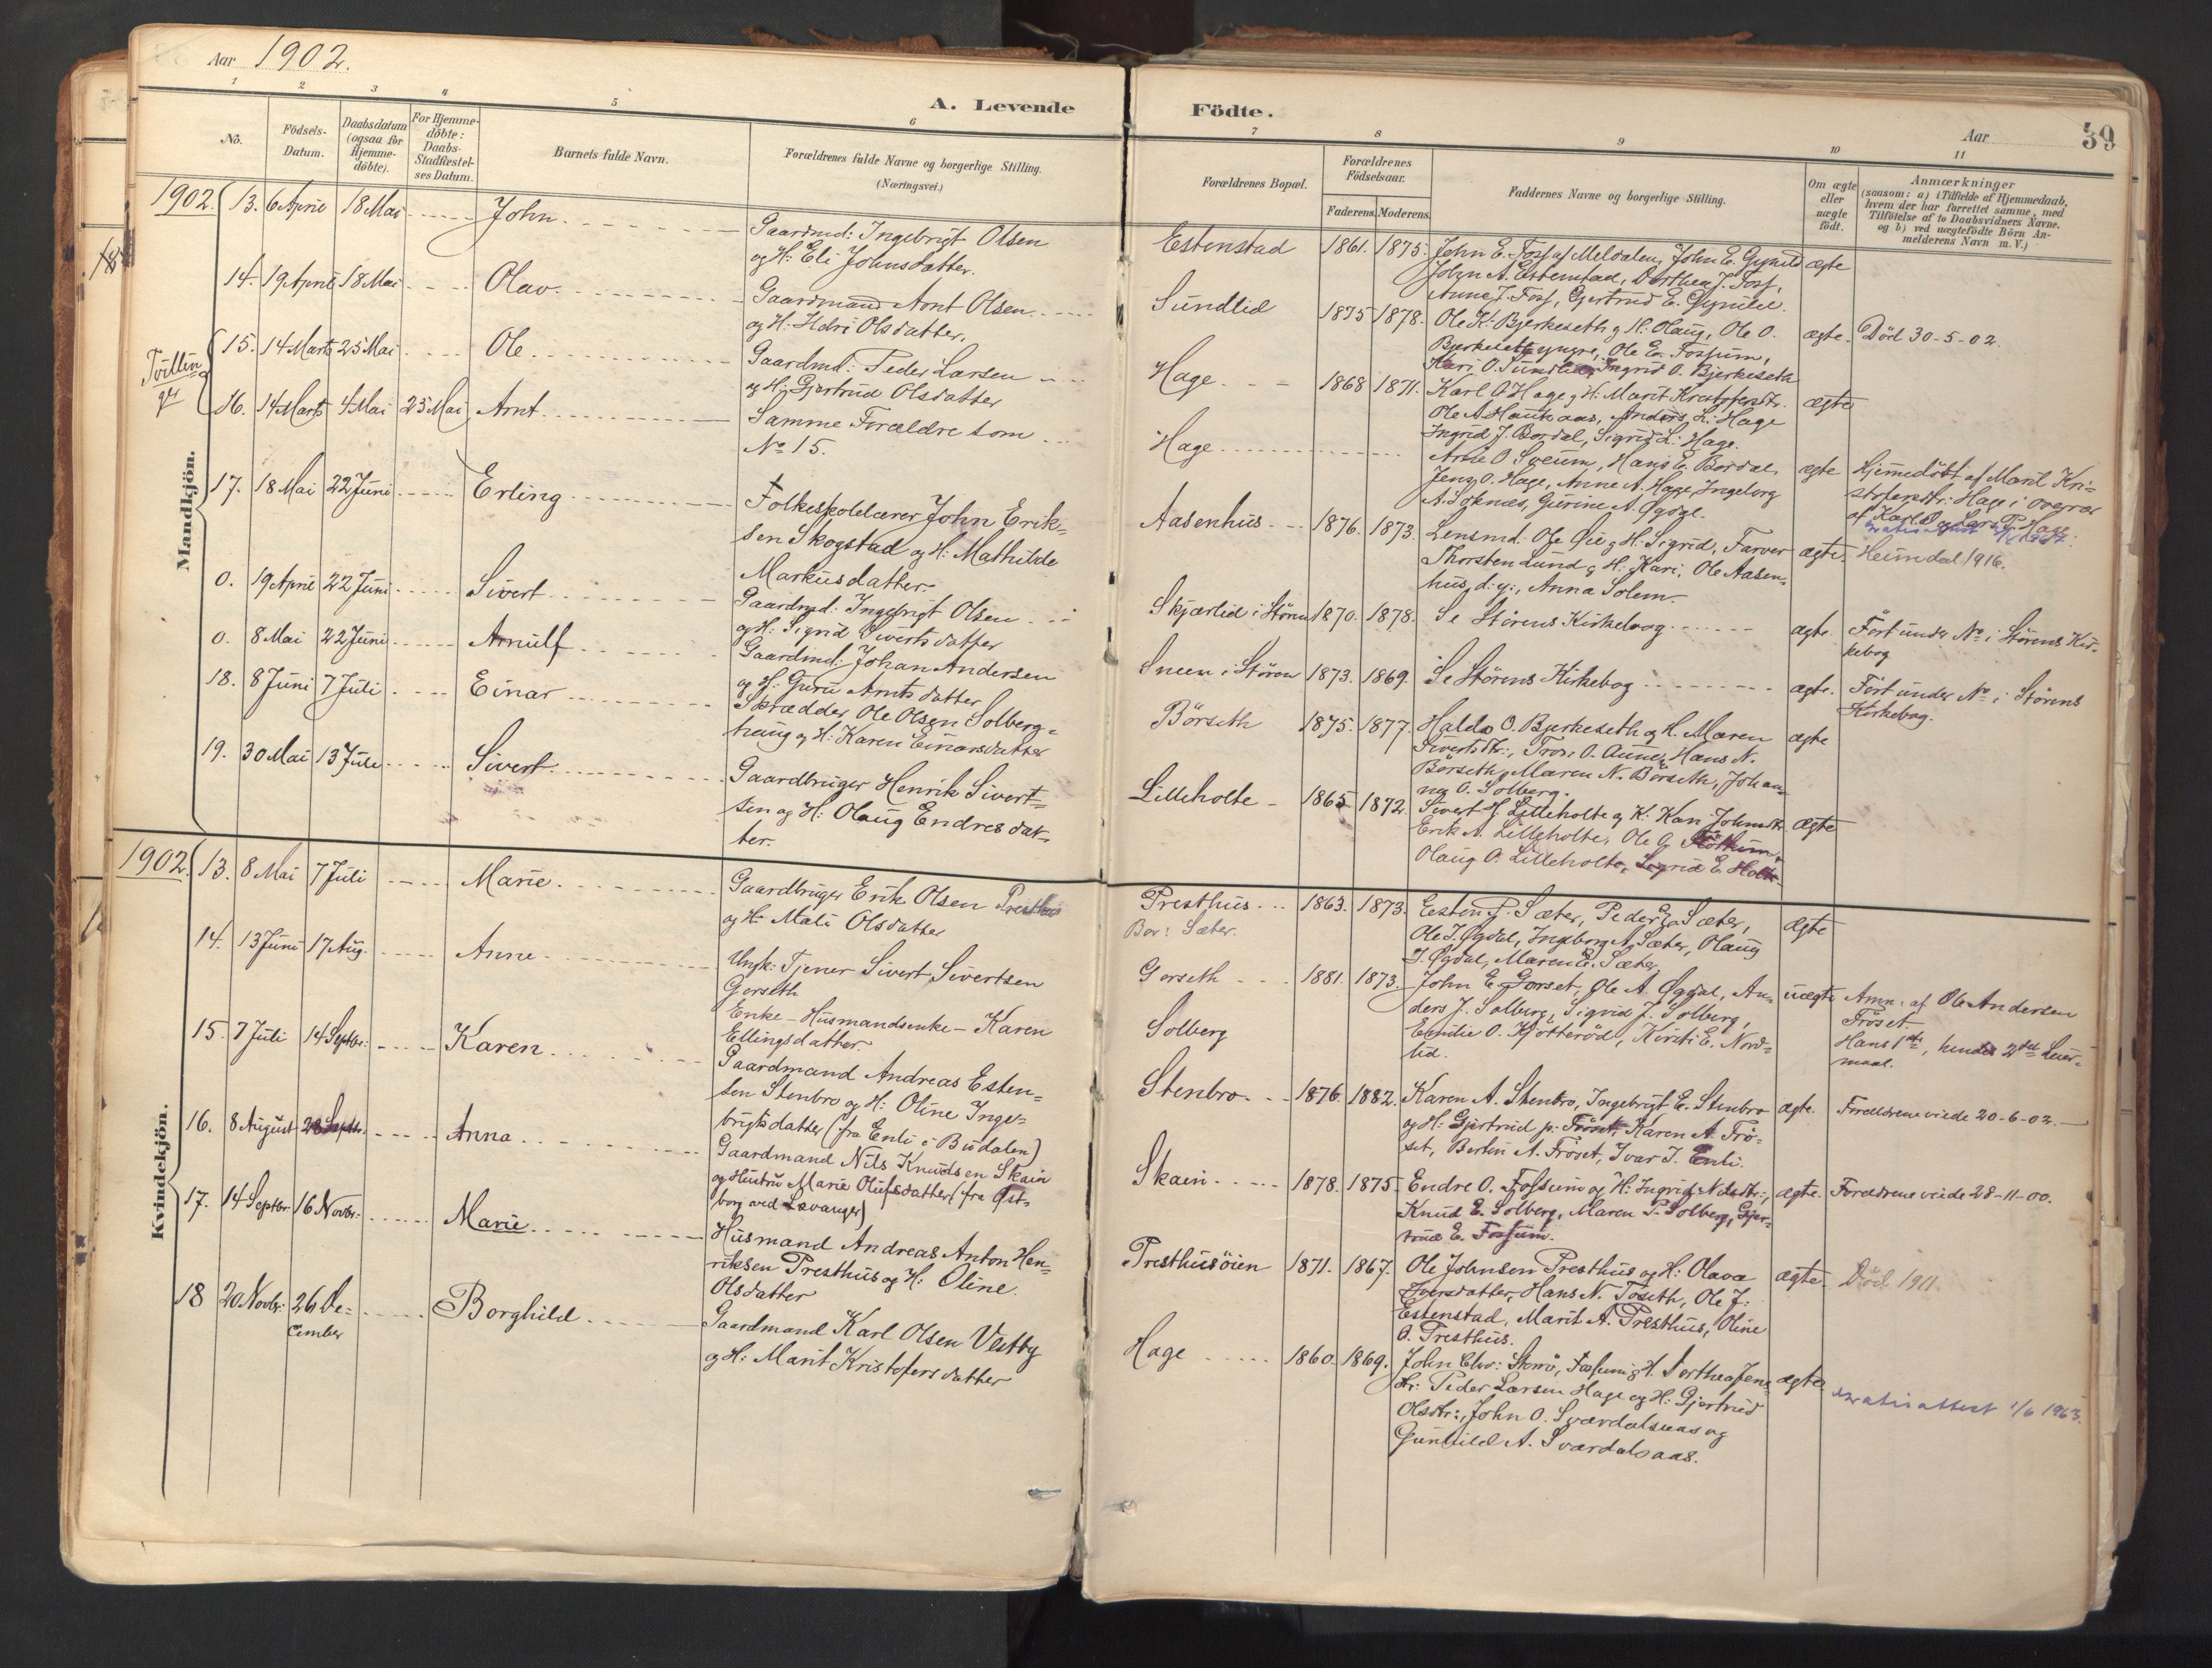 Aar 1902.
A. Levende Födte.
Aar
39
1 2 3 4 5 6 7 8 9 10 11
No.
Födsels-
Datum.
Daabsdatum
(ogsaa for
Hjemme-
döbte).
For Hjemme-
döbte:
Daabs-
Stadfæstel-
ses Datum.
Barnets fulde Navn.
Forældrenes fulde Navne og borgerlige Stilling.
(Næringsvei.)
Forældrenes Bopæl.
Forældrenes
Födselsaar.
Faderens. Moderens.
Faddernes Navne og borgerlige Stilling.
Om ægte
eller
uægte
født.
Anmærkninger
(saasom: a) i Tilfælde af Hjemmedaab,
hvem der har forrettet samme, med
Tilföielse af to Daabsvidners Navne.
og b) ved uægtefödte Börn An-
melderens Navn m. V.)
Mandkjön.
1902. 13. 6 April 18 Mai John
Gaardmd: Ingebrigt Olsen
og H: Eli Johnsdatter.
Estenstad 1861. 1875.
John E. Foss af Meldalen, John E.
John A. Estenstad, Dorthea J. Foss,
Anne J. Foss, Gjertrud E.
ægte
14. 19 April 18 Mai Olav
Gaardmand Arnt Olsen
og H: Olsdatter.
Sundlid 1875 1878.
Ole K. Bjerkeseth og H. Olaug, Ole O.
Bjerkeseth yngre, Ole E. Fossum,
O. Sundlid, Ingrid O. Bjerkeseth
ægte. Död 30-5-02.
Tvillin
ger
15. 14 Marts 25 Mai Ole
Gaardmd: Peder Larsen
og H: Gjertrud Olsdatter
Hage 1868 1871.
Karl O Hage og H: Marit Kristofersdtr.
Ole A. Haukaas, Anders L. Hage
Ingrid J. Bordal, Sigrid L. Hage.
ægte
16. 14 Marts 4 Mai 25 Mai Arnt
Samme Forældre som
No 15.
Hage
Arne O Sveum, Hans E. Bordal,
Jens O. Hage, Anne A. Hage, Ingeborg
A. Soknæs, Gurine A. Øgdal.
ægte Hjemmedöbt af Marit Kri-
stofersdtr: Hage i overvær
af Karl O og Lars P. Hage
17. 18 Mai 22 Juni Erling
Folkeskolelærer John Erik-
sen Skogstad og H: Mathilde
Markusdatter
Aasenhus 1876. 1873.
Lensmd. Ole Øie og H: Sigrid, Farver
Thorsten Lund og H: Kari, Ole Aasen-
hus, d. y., Anna Solem.
ægte. Heimdal 1916.
0. 19 April 22 Juni Sivert
Gaardmd: Ingebrigt Olsen
og H: Sigrid Sivertsdatter
Skjærlid i Stören 1870. 1878.
Se Störens Kirkebog
ægte. Fört under No i Störens Kir-
kebog
0. 8 Mai 22 Juni Arnulf
Gaardmd: Johan Andersen
og H: Guru Arntsdatter
Sneen i Stören 1873. 1869.
Se Störens Kirkebog
ægte. Fört under No i Störens
Kirkebog.
18. 8 Juni 7 Juli Einar
Skrædder Ole Olsen Solberg-
haug og H: Karen Einarsdatter
Börseth 1875. 1877.
Haldo O. Bjerkeseth og H. Maren
Sivertsdtr., O. Aune, Hans N.
Börseth, Maren N. Börseth, Johan-
na O. Solberg.
ægte
19. 30 Mai 13 Juli Sivert
Gaardbruger Henrik Sivert-
sen og H: Olaug Endresdat-
ter.
Lilleholte 1865 1872.
Sivert H. Lilleholte og K: Kari Johnsdtr.
Erik A. Lilleholte, Ole O.
Olaug O. Lilleholte, Sigrid E. Holte.
ægte
Kvindekjön.
1902. 13. 8 Mai 7 Juli Marie
Gaardbruger Erik Olsen Presthus
og H: Mali Olsdatter
Presthus 1863. 1873.
Bor: Sæter.
Esten P. Sæter, Peder E. Sæter,
Ole J. Øgdal, Ingeborg A. Sæter, Olaug
J. Øgdal, Maren E. Sæter
ægte
14. 13 Juni 17 Aug. Anne
Ungk: Tjener Sivert Sivertsen
Gorseth
Enke - Husmandsenke - Karen
Ellingsdatter.
Gorseth 1881. 1873.
Solberg
John E. Gorset, Ole A. Øgdal, An-
ders J. Solberg, Sigrid J. Solberg,
Emilie O. Kjötteröd, Kirsti E. Nord-
lid.
uægte Anm: af Ole Andersen
Fröset.
Hans 1ste, hendes 2det Leier-
maal.
15. 7 Juli 14 Septbr. Karen
Gaardmand Andreas Esten-
sen Stenbro og H: Oline Inge-
brigtsdatter (fra Enli i Budalen)
Stenbro 1876. 1882.
Karen A. Stenbro, Ingebrigt E. Stenbro
og H: Gjertrud p. Fröset, Karen A. Frö-
set, Berlin A. Fröset, Ivar J. Enli.
ægte. Forældrene viede 20-6-02.
16. 8 August 28 Septbr. Anna
Gaardmand Nils Knudsen Skain
og Hustru Marie Olufsdatter (fra Øst-
borg ved Levanger)
Skain 1878. 1875.
Endre O. Fossum og H: Ingrid Nilsdtr.,
Knud E. Solberg, Maren P. Solberg, Gjer-
trud E. Fossum.
ægte. Forældrene viede 28-11-00.
17. 14 Septbr. 16 Novbr. Marie
Husmand Andreas Anton Hen-
riksen Presthus og H: Oline
Olsdatter
Presthusöien 1871. 1867.
Ole Johnsen Presthus og H: Olava
Iversdatter, Hans N. Toseth, Ole J.
Estenstad, Marit A. Presthus, Oline
O. Presthus.
ægte. Död 1911.
18 20 Novbr. 26 De-
cember Borghild
Gaardmand Karl Olsen Vestby
og H: Marit Kristofersdatter
Hage 1860. 1869.
John Chr: Storrö, Fossum og H. Dorthea Jens
dtr. Peder Larsen Hage og H: Gjertrud
Olsdtr., John O. Sværdalsaas og
Gunhild A. Sværdalsaas.
ægte gratis attest 1/6 1963.